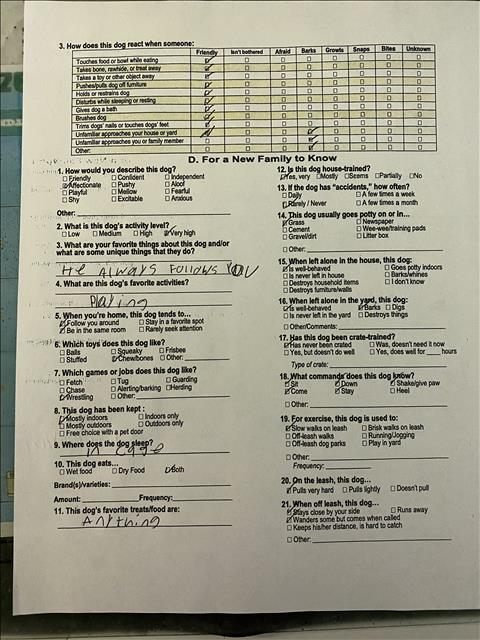 3. How does this dog react when someone:
Friendly Isn't bothered Afraid Barks Growls Snaps Bites Unknown
Touches food or bowl while eating
Takes bone, rawhide, or treat away
Takes a toy or other object away
Pushes/pulls dog off furniture
Holds or restrains dog
Disturbs while sleeping or resting
Gives dog a bath
Brushes dog
Trims dogs' nails or touches dogs' feet
Unfamiliar approaches your house or yard
Unfamiliar approaches you or family member
Other:
D. For a New Family to Know
1. How would you describe this dog?
☐ Friendly ☐ Confident ☐ Independent
☑ Affectionate ☐ Pushy ☐ Aloof
☐ Playful ☐ Mellow ☐ Fearful
☐ Shy ☐ Excitable ☐ Anxious
Other:
2. What is this dog's activity level?
☐ Low ☐ Medium ☐ High ☑ Very high
3. What are your favorite things about this dog and/or
what are some unique things that they do?
He Always Follows YOU
4. What are this dog's favorite activities?
Playing
5. When you're home, this dog tends to...
☑ Follow you around ☐ Stay in a favorite spot
☑ Be in the same room ☐ Rarely seek attention
6. Which toys does this dog like?
☐ Balls ☐ Squeaky ☐ Frisbee
☐ Stuffed ☑ Chew/bones ☐ Other:
7. Which games or jobs does this dog like?
☐ Fetch ☐ Tug ☐ Guarding
☐ Chase ☐ Alerting/barking ☐ Herding
☑ Wrestling ☐ Other:
8. This dog has been kept :
☑ Mostly indoors ☐ Indoors only
☐ Mostly outdoors ☐ Outdoors only
☐ Free choice with a pet door
9. Where does the dog sleep?
in cage
10. This dog eats...
☐ Wet food ☐ Dry Food ☑ Both
Brand(s)/varieties:
Amount: Frequency:
11. This dog's favorite treats/food are:
Anything
12. Is this dog house-trained?
☑ Yes, very ☐ Mostly ☐ Seems ☐ Partially ☐ No
13. If the dog has "accidents," how often?
☐ Daily ☐ A few times a week
☑ Rarely / Never ☐ A few times a month
14. This dog usually goes potty on or in...
☑ Grass ☐ Newspaper
☐ Cement ☐ Wee-wee/training pads
☐ Gravel/dirt ☐ Litter box
☐ Other:
15. When left alone in the house, this dog:
☑ Is well-behaved ☐ Goes potty indoors
☐ Is never left in house ☐ Barks/whines
☐ Destroys household items ☐ I don't know
☐ Destroys furniture/walls
16. When left alone in the yard, this dog:
☑ Is well-behaved ☑ Barks ☐ Digs
☐ Is never left in the yard ☐ Destroys things
☐ Other/Comments:
17. Has this dog been crate-trained?
☑ Has never been crated ☐ Was, doesn't need it now
☐ Yes, but doesn't do well ☐ Yes, does well for ____ hours
Type of crate:
18. What commands does this dog know?
☑ Sit ☑ Down ☑ Shake/give paw
☑ Come ☑ Stay ☐ Heel
☐ Other:
19. For exercise, this dog is used to:
☑ Slow walks on leash ☐ Brisk walks on leash
☐ Off-leash walks ☐ Running/Jogging
☐ Off-leash dog parks ☐ Play in yard
☐ Other:
Frequency:
20. On the leash, this dog...
☑ Pulls very hard ☐ Pulls lightly ☐ Doesn't pull
21. When off leash, this dog...
☑ Stays close by your side ☐ Runs away
☑ Wanders some but comes when called
☐ Keeps his/her distance, is hard to catch
☐ Other: